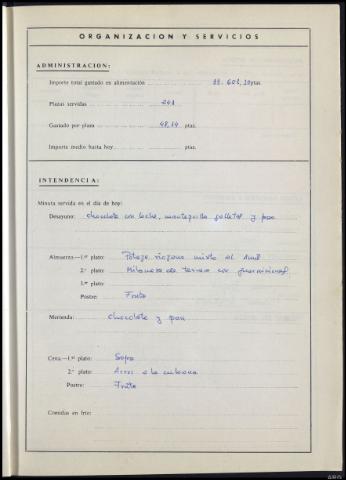 ORGANIZACION Y SERVICIOS
ADMINISTRACION:
Importe total gastado en alimentación ptas.
Plazas servidas 241
Gastado por plaza 48,14 ptas.
Importe medio hasta hoy ptas.
INTENDENCIA:
Minuta servida en el día de hoy:
Desayuno: chocolate con leche, mantequilla galletas y pan
Almuerzo—1.er plato: Potaje mixto al
2.º plato: Milanesa de ternera con
3.er plato:
Postre: Fruta
Merienda: chocolate y pan
Cena—1.er plato: Sopa
2.º plato: Arroz a la cubana
Postre: Fruta
Comidas en frío: